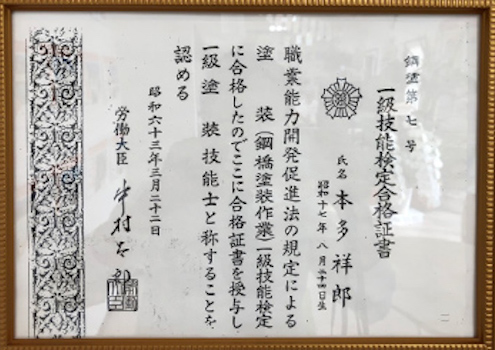 鋼塗第七号
一級技能検定合格証書
氏名 本多祥郎
昭和十七年八月二十四日生
職業能力開発促進法の規定による
塗装(鋼橋塗装作業)一級技能検定
に合格したのでここに合格証書を授与し
一級塗装技能士と称することを
認める
昭和六十三年三月二十二日
労働大臣 中村太郎